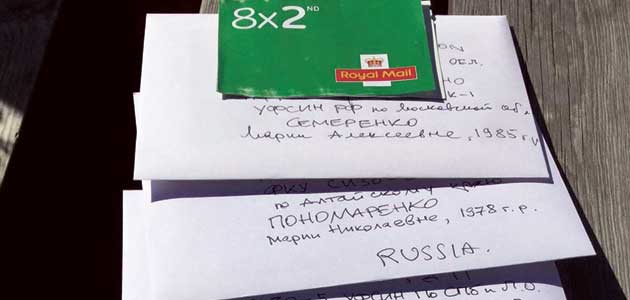 8x2ND
Royal Mail
ОБЛ.
К-1
УФСИН РФ по Московской об.,
СЕМЕРЕНКО
Марии Алексеевне, 1985 г.р
ФКУ СИЗО
по Алтайскому краю
ПОНОМАРЕНКО
Марии Николаевне, 1978 г.р.
RUSSIA.
УФСИН